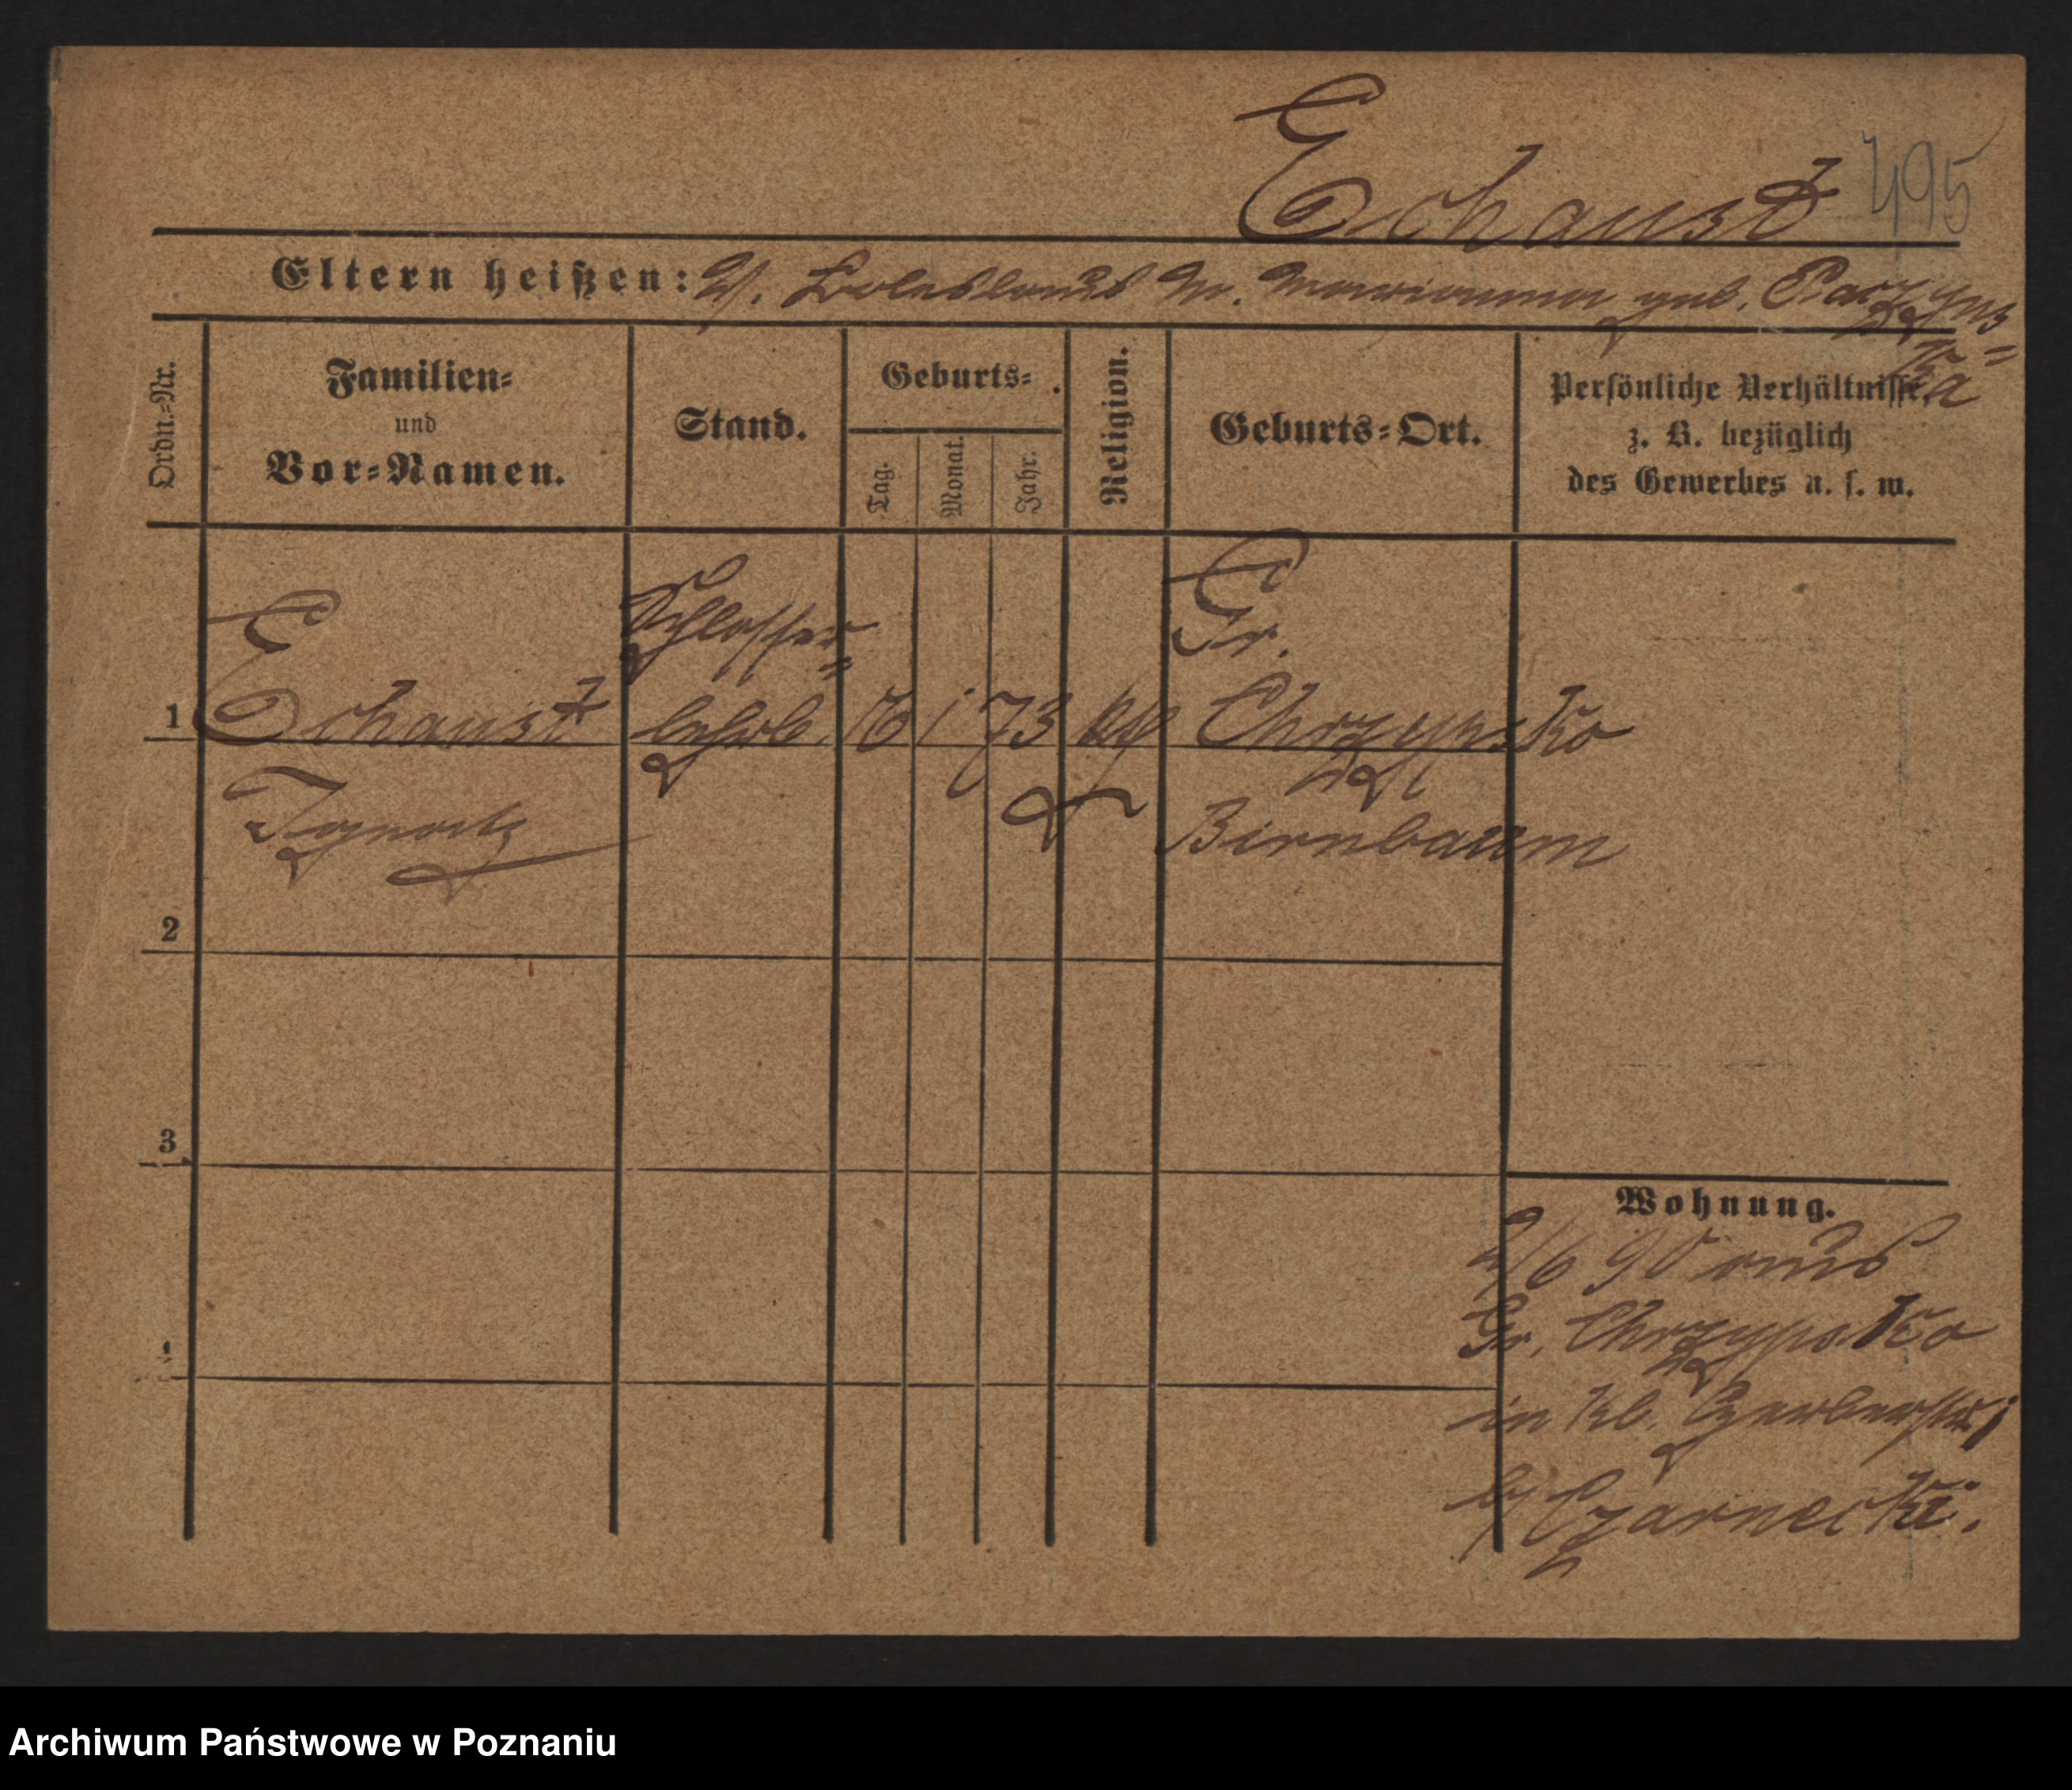 Echaust 495
Eltern heißen: V. Boleslaus M. Marianna geb. Parzyns=
ka
Ordn.=Nr.
Familien=
und
Vor=Namen.
Stand.
Geburts=
Tag.
Monat.
Jahr.
Religion.
Geburts=Ort.
Persönliche Verhältnisse
z. B. bezüglich
des Gewerbes u. s. w.
Schlosser= Gr.
1 Echaust lehrl. 16 1 73 kth Chrzypsko
Ignatz Birnbaum
2
3
4
Wohnung.
2/6 90 aus
Gr. Chrzypsko
in Kl. Gerberstr.
b/ Czarnecki.
Archiwum Państwowe w Poznaniu